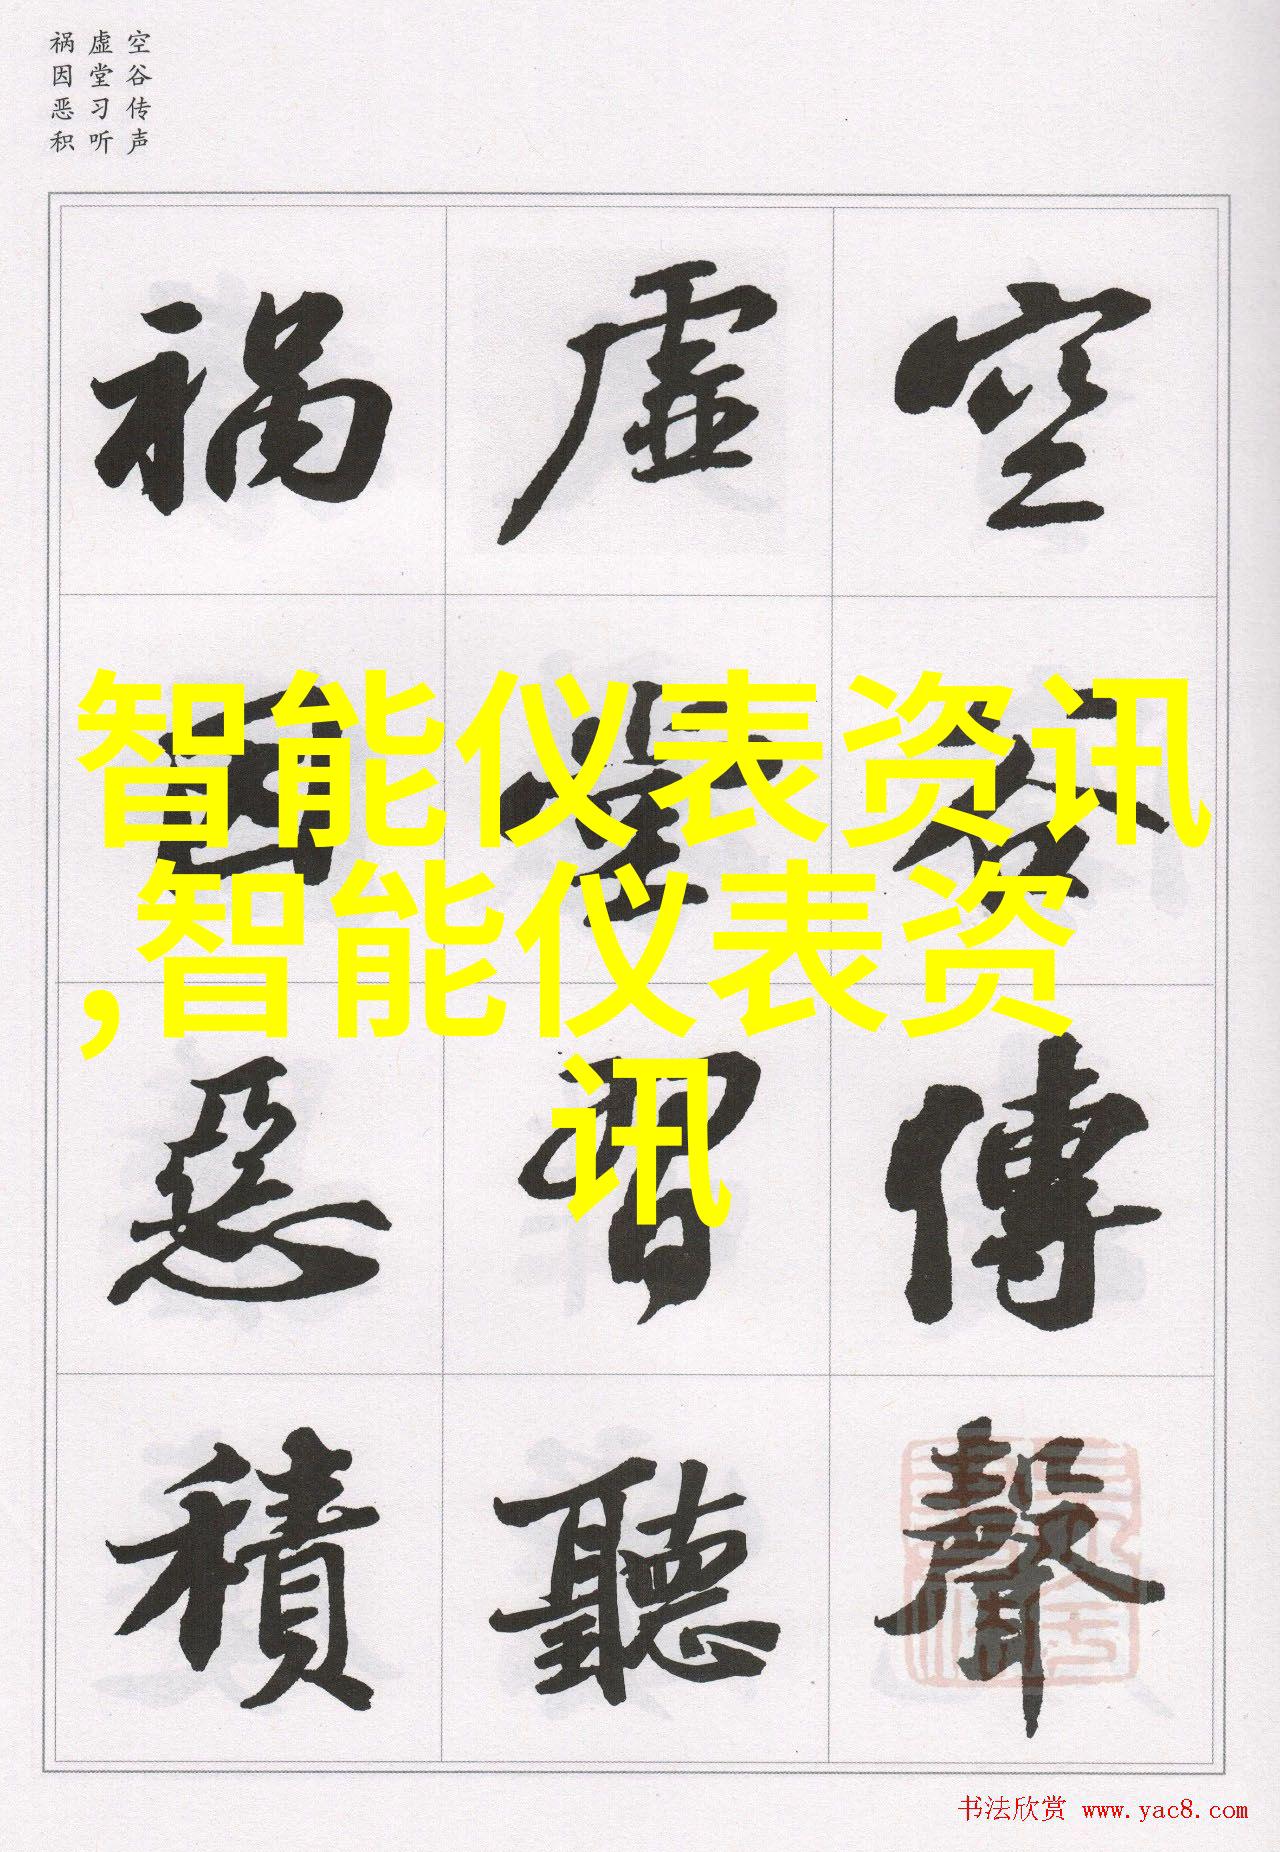 空谷传声
虚堂习听
祸因恶积
空谷傳聲
虚堂習聽
禍因惡積
智能仪表资讯
,智能仪表资
讯
书法欣赏 www.yac8.com